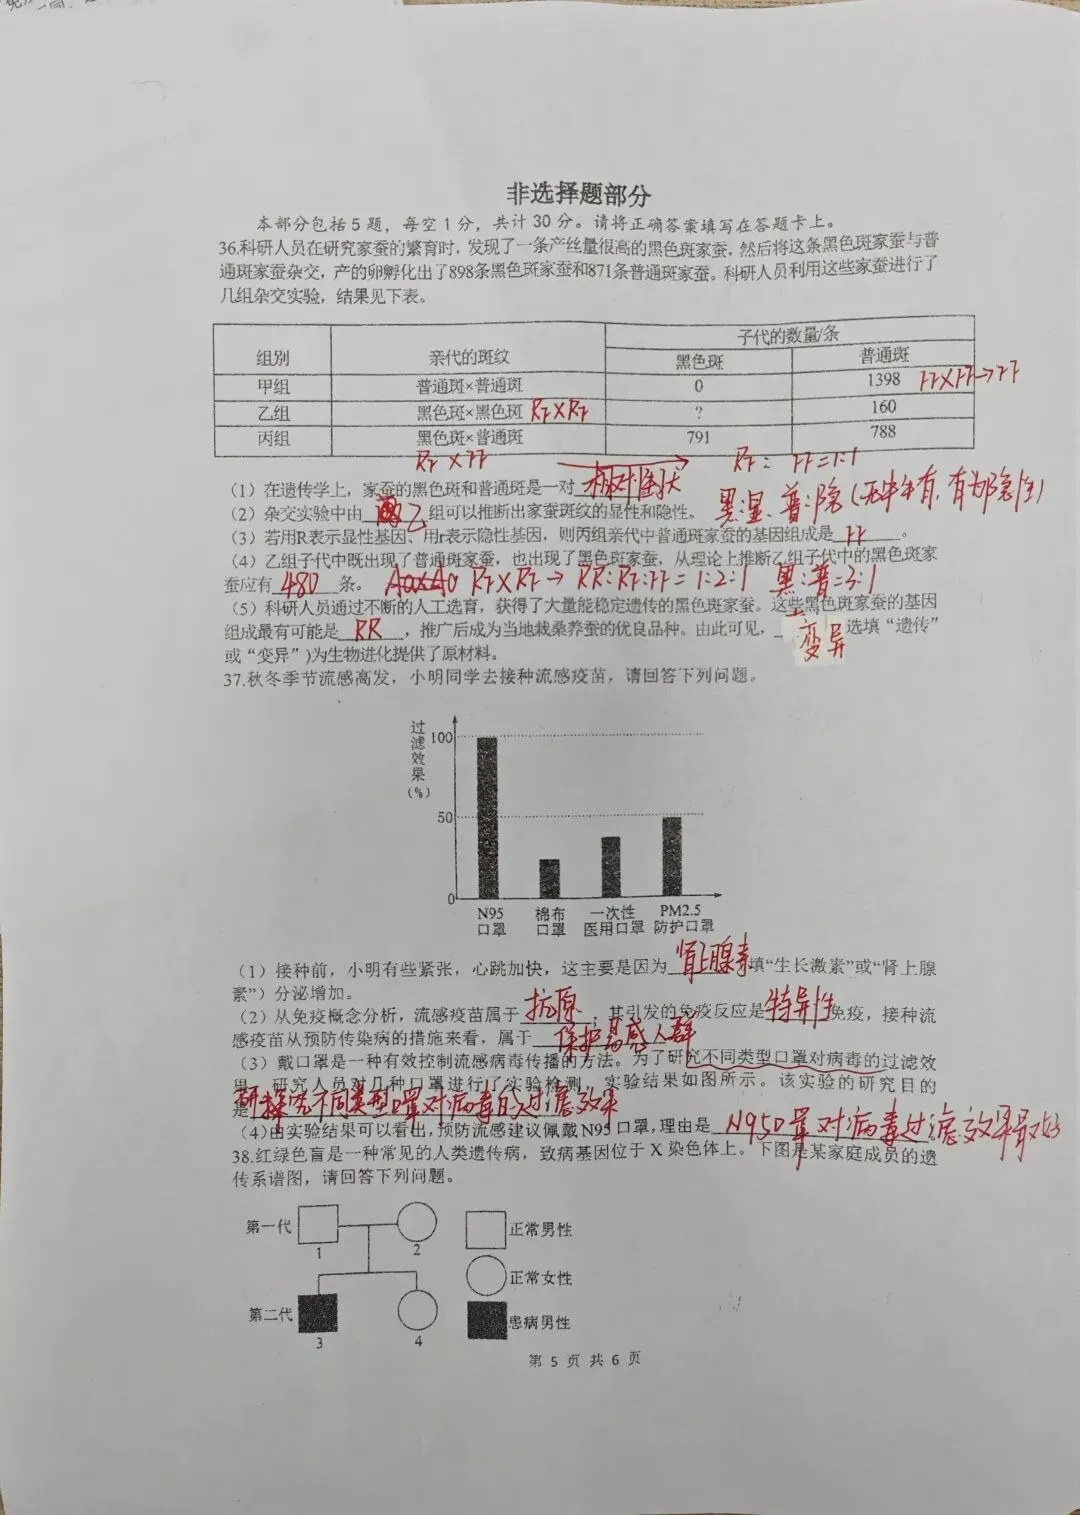 非选择题部分
本部分包括5题，每空1分，共计30分。请将正确答案填写在答题卡上。
36.科研人员在研究家蚕的繁育时，发现了一条产丝量很高的黑色斑家蚕，然后将这条黑色斑家蚕与普
通斑家蚕杂交，产的卵孵化出了898条黑色斑家蚕和871条普通斑家蚕。科研人员利用这些家蚕进行了
几组杂交实验，结果见下表。
组别 亲代的斑纹 子代的数量/条
黑色斑 普通斑
甲组 普通斑×普通斑 0 1398 rr×rr→rr
乙组 黑色斑×黑色斑 Rr×Rr ? 160
丙组 黑色斑×普通斑 791 788
Rr×rr Rr：rr=1:1
（1）在遗传学上，家蚕的黑色斑和普通斑是一对 相对性状
（2）杂交实验中由 乙 组可以推断出家蚕斑纹的显性和隐性。 黑:显、普:隐(无中生有,有为隐性)
（3）若用R表示显性基因、用r表示隐性基因，则丙组亲代中普通斑家蚕的基因组成是 rr 。
（4）乙组子代中既出现了普通斑家蚕，也出现了黑色斑家蚕，从理论上推断乙组子代中的黑色斑家
蚕应有 480 条。 Rr×Rr→RR:Rr:rr=1:2:1 黑:普=3:1
（5）科研人员通过不断的人工选育，获得了大量能稳定遗传的黑色斑家蚕。这些黑色斑家蚕的基因
组成最有可能是 RR ，推广后成为当地栽桑养蚕的优良品种。由此可见， 变异 选填“遗传”
或“变异”)为生物进化提供了原材料。
37.秋冬季节流感高发，小明同学去接种流感疫苗，请回答下列问题。
过滤效果(%)
100
50
0
N95口罩 棉布口罩 一次性医用口罩 PM2.5防护口罩
（1）接种前，小明有些紧张，心跳加快，这主要是因为 肾上腺素 填“生长激素”或“肾上腺
素”）分泌增加。
（2）从免疫概念分析，流感疫苗属于 抗原 ，其引发的免疫反应是 特异性 免疫，接种流
感疫苗从预防传染病的措施来看，属于 保护易感人群
（3）戴口罩是一种有效控制流感病毒传播的方法。为了研究不同类型口罩对病毒的过滤效
果，研究人员对几种口罩进行了实验检测，实验结果如图所示。该实验的研究目的
是 研探究不同类型口罩对病毒的过滤效果
（4）由实验结果可以看出，预防流感建议佩戴N95口罩，理由是 N95口罩对病毒过滤效果最好
38.红绿色盲是一种常见的人类遗传病，致病基因位于 X 染色体上。下图是某家庭成员的遗
传系谱图，请回答下列问题。
第一代 1 2 正常男性
正常女性
第二代 3 4 患病男性
第 5 页 共 6 页